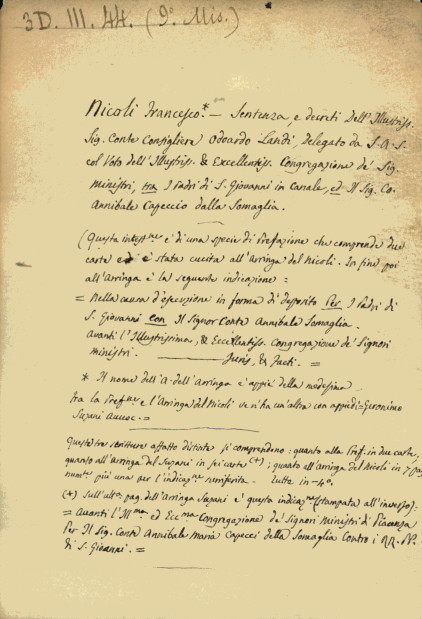 3D. III. 44. (9º Mis.)
Nicoli Francesco.* — Sentenza, e decreti Dell'Illustriss.
Sig. Conte Consigliere Odoardo Landi, Delegato da S. A. S.
col Voto dell'Illustriss. & Excellentiss. Congregazione de' Sig.
Ministri, tra I Padri di S. Giovanni in Canale, ed Il Sig. Co.
Annibale Capeccio dalla Somaglia.
(Questa intest.ne è di una specie di Prefazione che comprende due
carte ed è stata cucita all'Arringa del Nicoli. In fine poi
all'Arringa è la seguente indicazione =
= Nella causa d'esecuzione in forma di deposito Per I Padri di
S. Giovanni con Il Signor Conte Annibale Somaglia.
Avanti l'Illustrissima, & Eccellentiss. Congregazione de' Signori
Ministri. — Juris, & Facti. =
* Il nome dell'A. dell'Arringa è appiè della medesima
tra la Pref.ne e l'Arringa del Nicoli ve n'ha un'altra con appiedi = Geronimo
Suzani Avvoc. =
Queste tre scritture affatto distinte si comprendono: quanto alla Pref. in due carte,
quanto all'Arringa del Suzani in sei carte (+); quanto all'arringa del Nicoli in 7 pag.
num.te più una per l'indicaz.ne surriferita. - tutto in-4º.
(+) Sull'ult.a pag. dell'Arringa Suzani è questa indicaz.ne (stampata all'inverso):=
= Avanti l'Ill.ma ed Ecc.ma Congregazione de' Signori Ministri di Piacenza
Per Il Sig. Conte Annibale Maria Capecci della Somaglia Contro i RR. PP.
di S. Giovanni. =